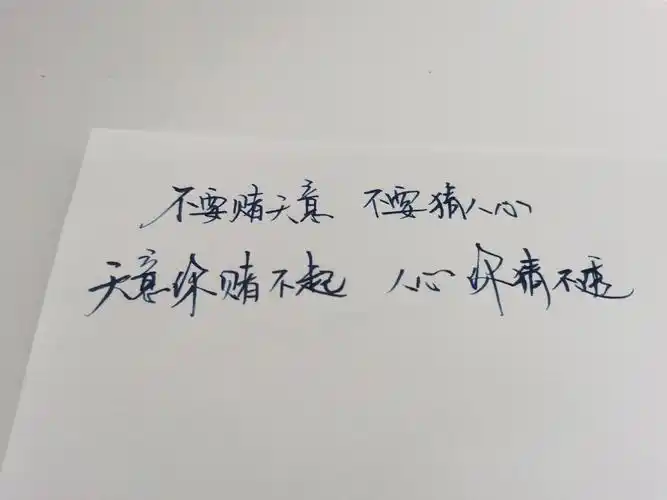 不要赌天意 不要猜人心
天意你赌不起 人心你猜不透